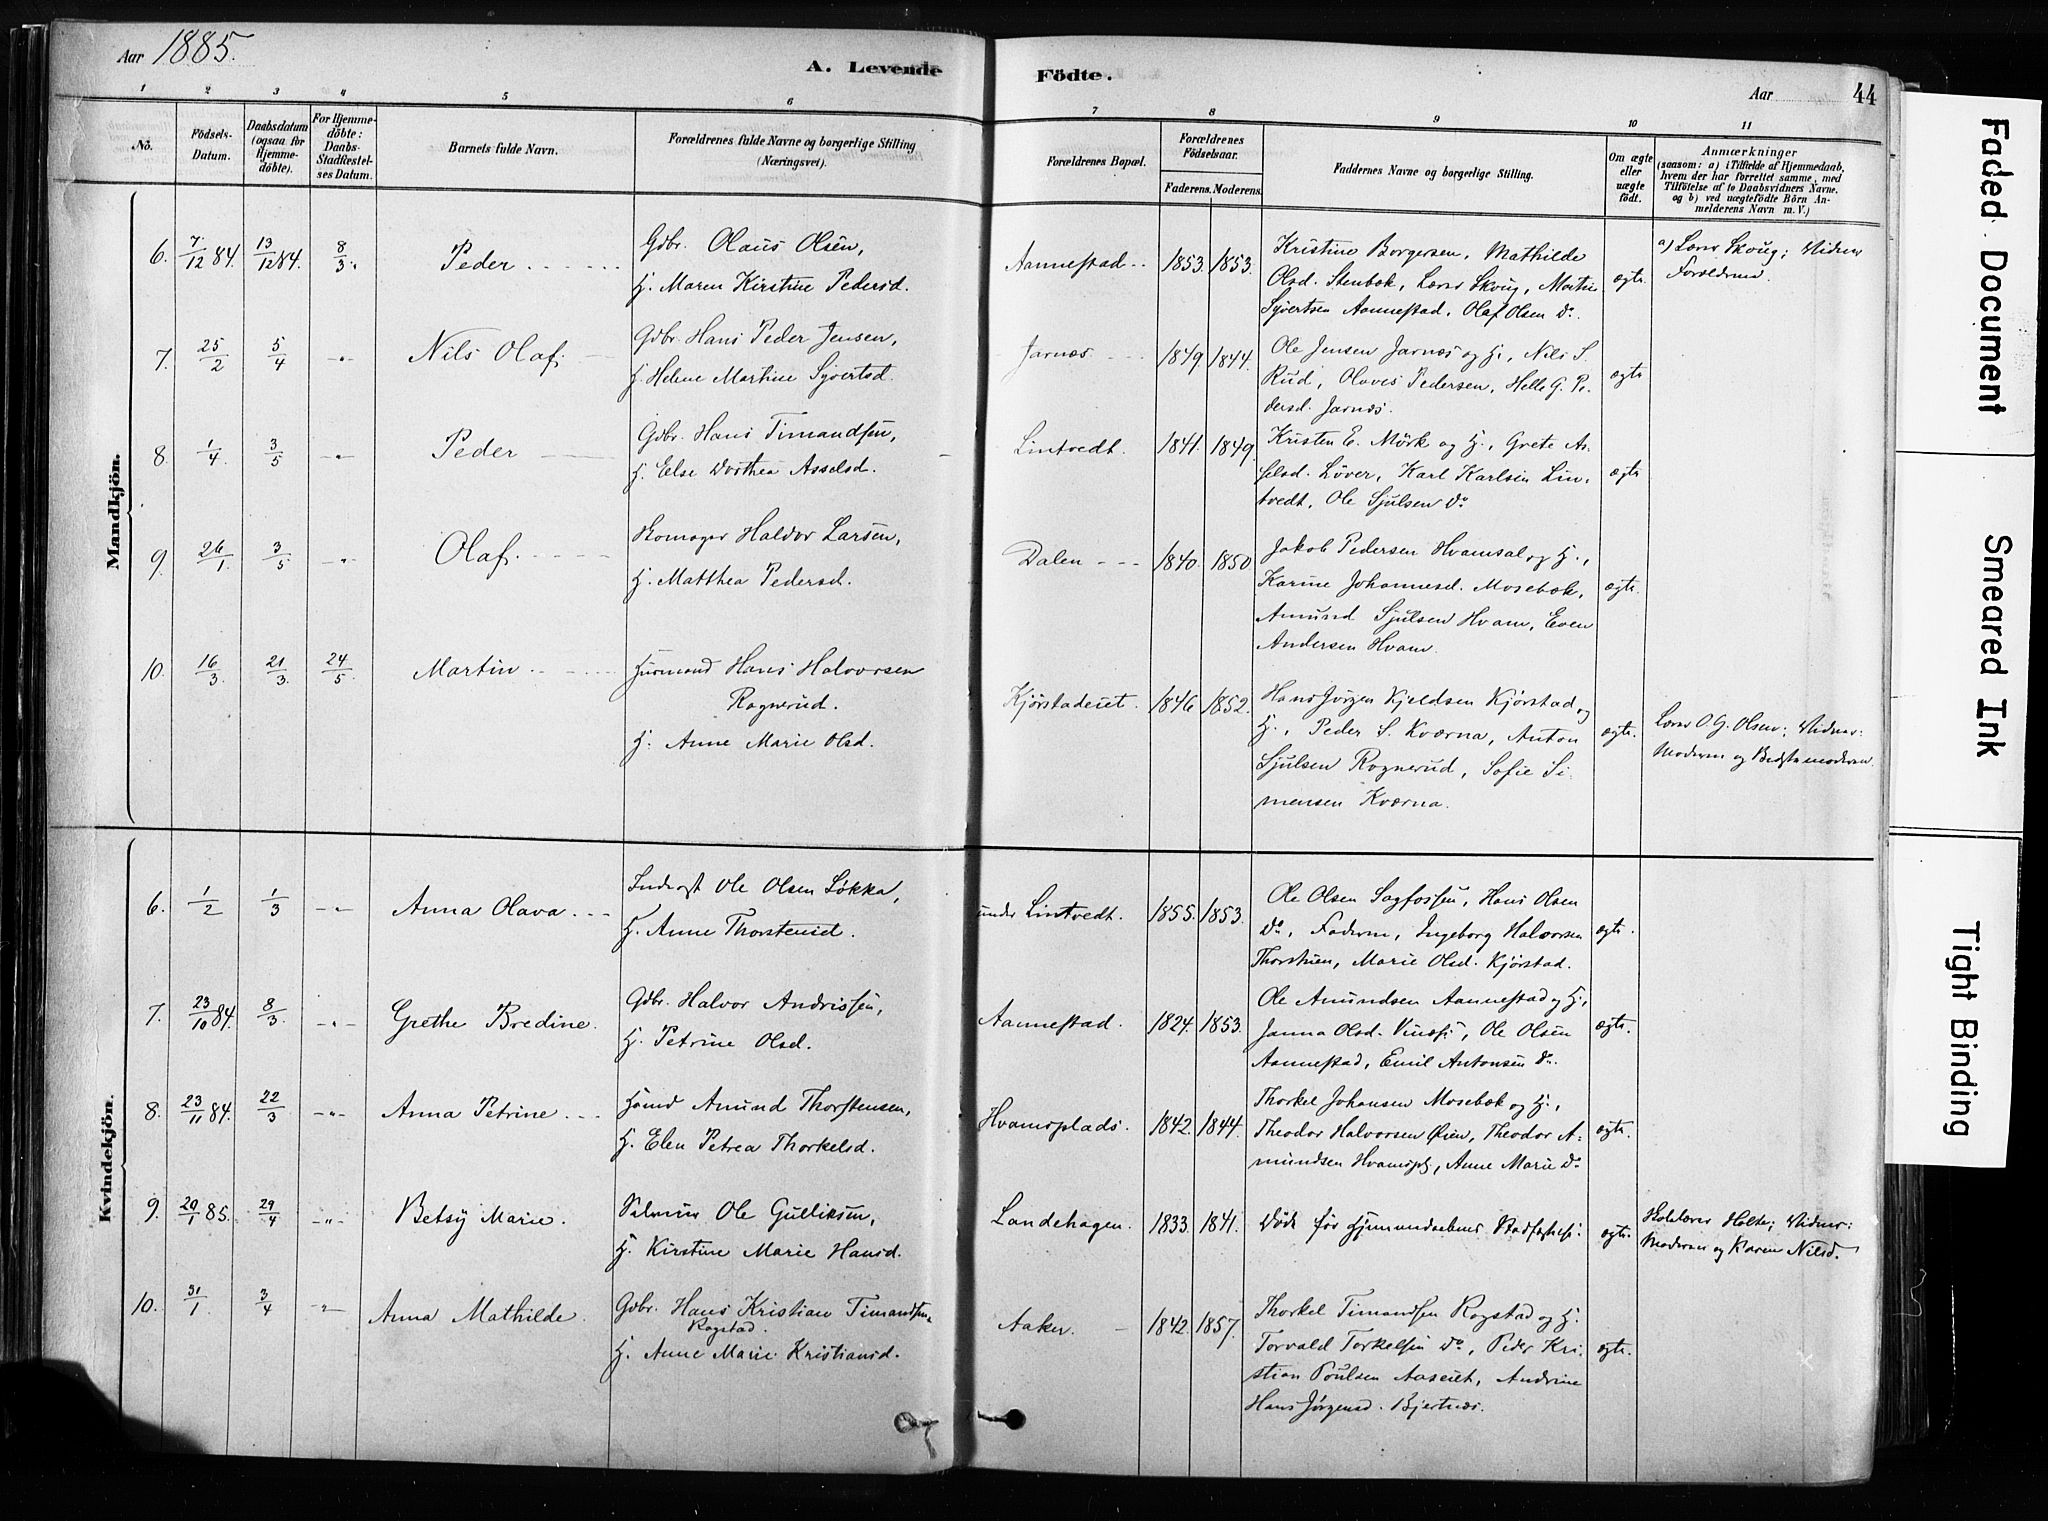 Aar 1885.
A. Levende Födte.
Aar 44
1 2 3 4 5 6 7 8 9 10 11
No.
Födsels-
Datum.
Daabsdatum
(ogsaa for
Hjemme-
döbte).
For Hjemme-
döbte:
Daabs-
Stadfæstel-
ses Datum.
Barnets fulde Navn.
Forældrenes fulde Navne og borgerlige Stilling
(Næringsvei).
Forældrenes Bopæl.
Forældrenes
Födselsaar.
Faderens. Moderens.
Faddernes Navne og borgerlige Stilling.
Om ægte
eller
uægte
födt.
Anmærkninger
(saasom: a) i Tilfælde af Hjemmedaab,
hvem der har forrettet samme, med
Tilföielse af to Daabsvidners Navne.
og b) ved uægtefödte Börn An-
melderens Navn m. V.)
Mandkjön.
6. 7/12 84. 13/12 84. 8/3.
Peder
Gdbr. Olaus Olsen,
H. Maren Kirstine Pedersd.
Aannestad 1853. 1853.
Kristine Borgersen, Mathilde
Olsd. Stenbæk, Lærer Skoug, Martin
Syvertsen Aannestad, Olaf Olsen Do.
ægte.
a) Lærer Skoug; Vidner
Forældrene.
7. 25/2 5/4 -"-
Nils Olaf.
Gdbr. Hans Peder Jensen,
H. Helene Martine Syvertsd.
Jarnæs 1849 1844.
Ole Jensen Jarnæs og H., Nils S.
Rud, Olaves Pedersen, Helle G. Pe-
dersd. Jarnæs.
ægte
8. 1/4. 3/5 -"-
Peder
Gdbr. Hans Timandsen,
H. Else Dorthea Asselsd.
Lintvedt. 1841. 1849.
Kristen E. Mörk og H., Grete As-
selsd. Løver, Karl Karlsen Lin-
tvedt, Ole Sjulsen Do
ægte
9. 26/1. 3/5 -"-
Olaf.
Haldor Larsen,
H. Matthea Pedersd.
Dalen 1840. 1850.
Jakob Pedersen Hvamsal og H.,
Karine Johannesd. Mosebæk,
Amund Sjulsen Hvam, Even
Andersen Hvam.
ægte.
10. 16/3. 21/3. 24/5
Martin
Husmand Hans Halvorsen
Rognerud.
H. Anne Marie Olsd.
Kjørstadeiet. 1846 1852.
Hans Jørgen Kjeldsen Kjørstad og
H., Peder S. Kværna, Anton
Sjulsen Rognerud, Sofie Si-
mensen Kværna.
ægte.
Lærer O. G. Olsen; Vidner:
Moderen og Bedstemoderen.
Kvindekjön.
6. 1/2 1/3 -"-
Anna Olava
Inderst Ole Olsen Løkka,
H. Anne Thorstensd.
under Lintvedt. 1855. 1853.
Ole Olsen Sagfossen, Hans Olsen
Do, Faderen, Ingeborg Halvorsen
Thorstuen, Marie Olsd. Kjørstad.
ægte.
7. 23/10 84. 8/3. -"-
Grethe Bredine.
Gdbr. Halvor Andrissen,
H. Petrine Olsd.
Aannestad. 1824. 1853.
Ole Amundsen Aannestad og H.,
Janna Olsd. Ole Olsen
Aannestad, Emil Antonsen Do.
ægte.
8. 23/11 84. 22/3 -"-
Anna Petrine
Husmd Amund Thorstensen,
H. Elen Petrea Thorkelsd.
Hvamsplads. 1842. 1844.
Thorkel Johansen Mosebæk og H.,
Theodor Halvorsen Øien, Theodor A-
mundsen Hvamspl, Anne Marie Do
ægte.
9. 20/1 85. 29/4 -"-
Betsy Marie.
Ole Gulliksen,
H. Kirstine Marie Hansd.
Landehagen. 1833. 1841.
Døde før Hjemmedaabens Stadfæstelse.
ægte.
Skolelærer Holte; Vidner:
Moderen og Karen Nilsd.
10. 31/1 3/4 -"-
Anna Mathilde.
Gdbr. Hans Kristian Timandsen
Rogstad.
H. Anne Marie Kristiansd.
Aaker. 1842. 1857.
Thorkel Timandsen Rogstad og H.
Torvald Torkelsen Do, Peder Kri-
stian Poulsen Aaseiet, Andrine
Hans Jørgensd. Bjertnæs.
ægte.
Faded Document
Smeared Ink
Tight Binding